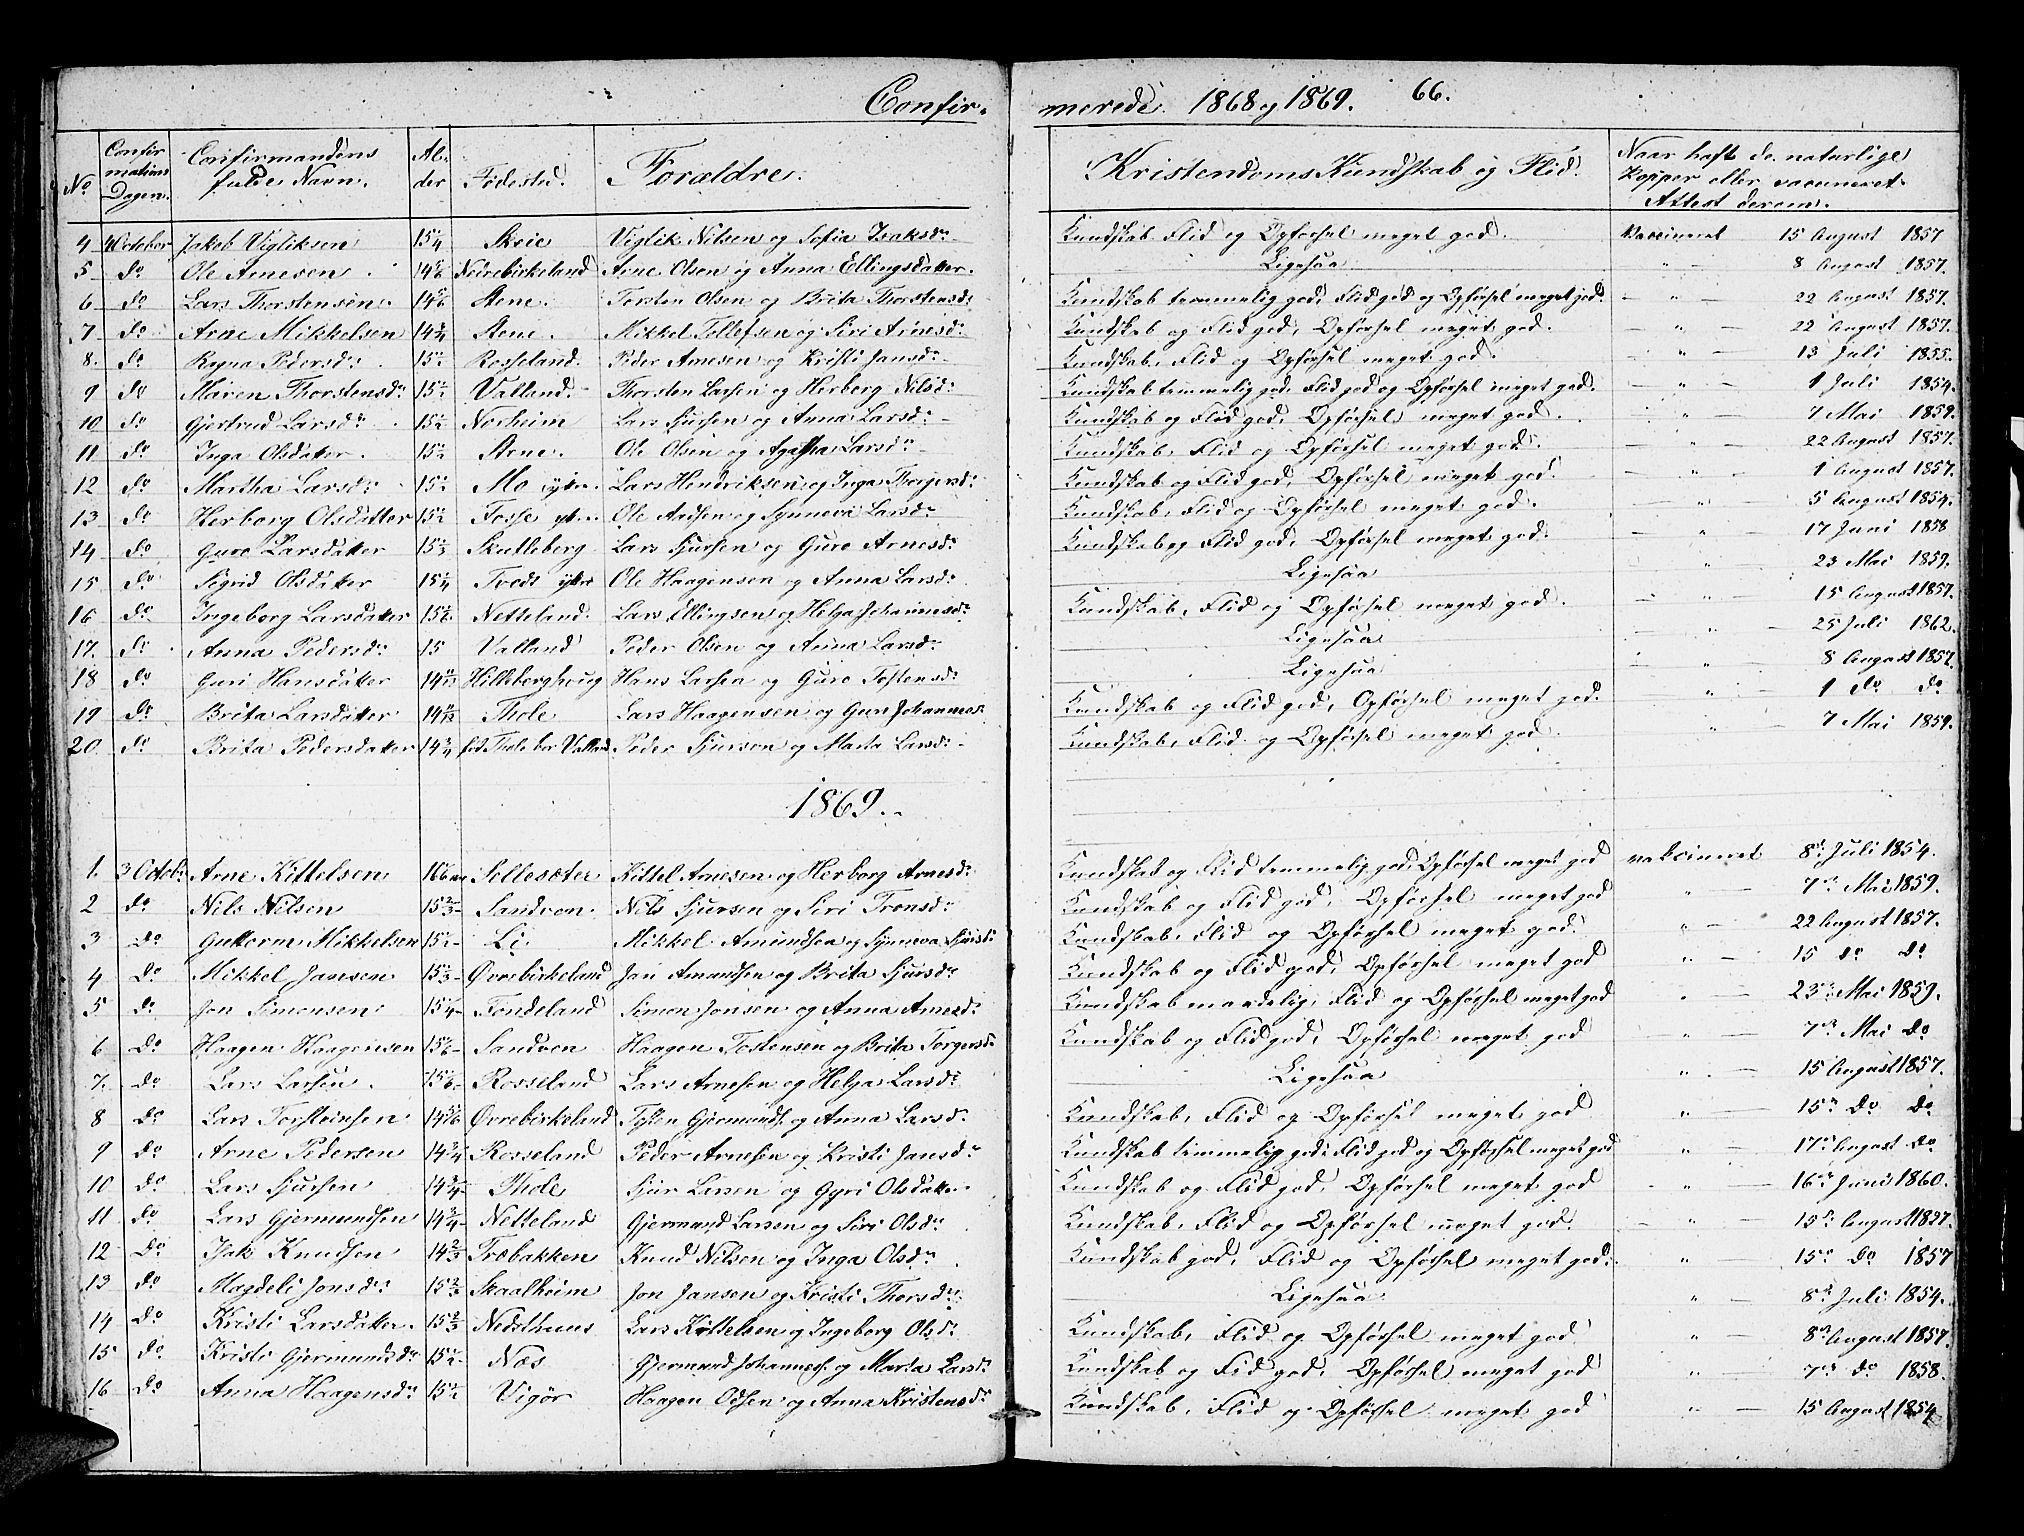 Confir-
merede 1868 og 1869. 66.
No Confirmations Dagen. Confirmandens fulde Navn. Alder Födested. Forældre. Kristendoms Kundskab og Flid. Naar haft de naturlige Kopper eller vaccineret. Attest derom.
4 4 October Jakob Vigliksen 15 1/4 Skeie Viglik Nilsen og Sofia Isaksdr Kundskab Flid og Opførsel meget god. Vaccineret 15 August 1857
5 do Ole Arnesen 14 5/6 Nedrebirkeland Arne Olsen og Anna Ellingsdatter. Ligesaa " 8 August 1857.
6 do Lars Thorstensen 14 5/6 Aene. Torsten Olsen og Brita Thorstensdr Kundskab temmelig god, Flid god og Opførsel meget god. " 22 August 1857.
7 do Arne Mikkelsen 14 3/4 Aene. Mikkel Tollefsen og Siri Arnesdr Kundskab og Flid god, Opførsel meget god. " 22 August 1857.
8. do Ragna Pedersdr 15 1/2 Rosseland. Peder Arnesen og Kristi Jansdr Kundskab, Flid og Opførsel meget god. " 13 Juli 1855.
9 do Maren Thorstensdr 15 1/2 Valland. Thorsten Larsen og Herborg Nilsdr Kundskab temmelig god, Flid god og Opførsel meget god. " 1 Juli 1854.
10 do Gjertrud Larsdr 15 1/2 Norheim Lars Sjursen og Anna Larsdr Kundskab og Flid god, Opførsel meget god. " 7 Mai 1859.
11 do Inga Olsdatter. 15 1/2 Aene. Ole Olsen og Agatha Larsdr Kundskab, Flid og Opførsel meget god. " 22 August 1857.
12 do Martha Larsdr 15 1/2 Mo ytre. Lars Hendriksen og Inga Thorgersdr Kundskab og Flid god, Opførsel meget god. " 1 August 1857.
13 do Herborg Olsdatter 15 1/2 Fosse yt. Ole Aadsen og Synneva Larsdr Kundskab, Flid og Opførsel meget god. " 5 August 1854.
14 do Guro Larsdatter 15 1/3 Skutleberg Lars Sjursen og Guro Arnesdr Kundskab og Flid god, Opførsel meget god. " 17 Juni 1858
15 do Sigrid Olsdatter 15 1/4 Tvedt ytre Ole Haagensen og Anna Larsdr Ligesaa " 23 Mai 1859.
16 do Ingeborg Larsdatter 15 1/6 Netteland. Lars Ellingsen og Helga Johannesdr Kundskab, Flid og Opførsel meget god. " 15 August 1857.
17. do Anna Pedersdr 15 Valland Peder Olsen og Anna Larsdr Ligesaa " 25 Juli 1862.
18 do Guri Hansdatter 14 11/12 Hilleberghoug Hans Larsen og Guro Tostensdr Ligesaa " 8 August 1857
19 do Brita Larsdatter 14 11/12 Thole Lars Haagensen og Guri Johannesdr Kundskab og Flid god, Opførsel meget god. " 1 do do
20. do Brita Pedersdatter 14 3/4 föd Thole bor Valland. Peder Sjurson og Marta Larsdr Kundskab, Flid og Opførsel meget god. " 7 Mai 1859.
1869.
1. 3 Octobr Arne Kittelsen 16 Sollesæter Kittel Arnesen og Herborg Arnesdr Kundskab og Flid temmelig god, Opførsel meget god vakcineret 8de Juli 1854.
2 do Nils Nilsen 15 2/3 Sandven. Nils Sjursen og Siri Tronsdr Kundskab og Flid god, Opførsel meget god " 7de Mai 1859.
3 Do Guttorm Mikkelsen 15 1/2 Li. Mikkel Amundsen og Synneva Kundskab, Flid og Opførsel meget god. " 22 August 1857.
4 Do Mikkel Jansen 15 1/3 Øvrebirkeland Jan Amundsen og Brita Sjursdr Kundskab og Flid god, Opførsel meget god " 15 do Do
5 do Jon Simonsen 15 1/4 Tondeland Simon Jonsen og Anna Arnesdr Kundskab maadelig, Flid og Opførsel meget god " 23de Mai 1859.
6 Do Haagen Haagensen 15 1/6 Sandven Haagen Tostensen og Brita Torgersdr Kundskab og Flid god, Opførsel meget god " 7de Mai Do
7. do Lars Larsen. 15 1/6 Rosseland Lars Arnesen og Helga Larsdr Ligesaa " 15 August 1857.
8 do Lars Torsteinsen 14 5/6 Øvrebirkeland Tosten Gjermunds. og Anna Larsdr Kundskab, Flid og Opførsel meget god " 15de Do Do
9 do Arne Pedersen 14 3/4 Rosseland Peder Arnesen og Kristi Jansdr Kundskab temmelig god, Flid god og Opførsel meget god " 17de August Do
10 do Lars Sjursen 14 3/4 Thole Sjur Larsen og Gyri Olsdatter. Kundskab og Flid god, Opførsel meget god " 16de Juni 1860.
11 do Lars Gjermundsen 14 3/4 Netteland Gjermund Larsen og Siri Olsdr Kundskab, Flid og Opførsel meget god. " 15de August 1857.
12 Do Isak Knudsen 14 2/3 Træbakken Knud Nilsen og Inga Olsdr Kundskab god, Flid og Opførsel meget god. " 15de Do 1857
13 do Magdeli Jonsdr 15 2/3 Skaalheim Jon Jansen og Kristi Thorsdr Ligesaa " 8de Juli 1854.
14 do Kristi Larsdatter. 15 2/3 Nedsthuus Lars Kittelsen og Ingeborg Olsdr Kundskab, Flid og Opførsel meget god " 8de August 1857.
15 Do Kristi Gjermundsdr 15 1/2 Næs Gjermund Johannes. og Marta Larsdr Kundskab og Flid god, Opførsel meget god " 7de do 1858.
16 do Anna Haagensdr 15 1/2 Vigör Haagen Odsen og Anna Kristensdr Kundskab, Flid og Opførsel meget god " 15 August 1854